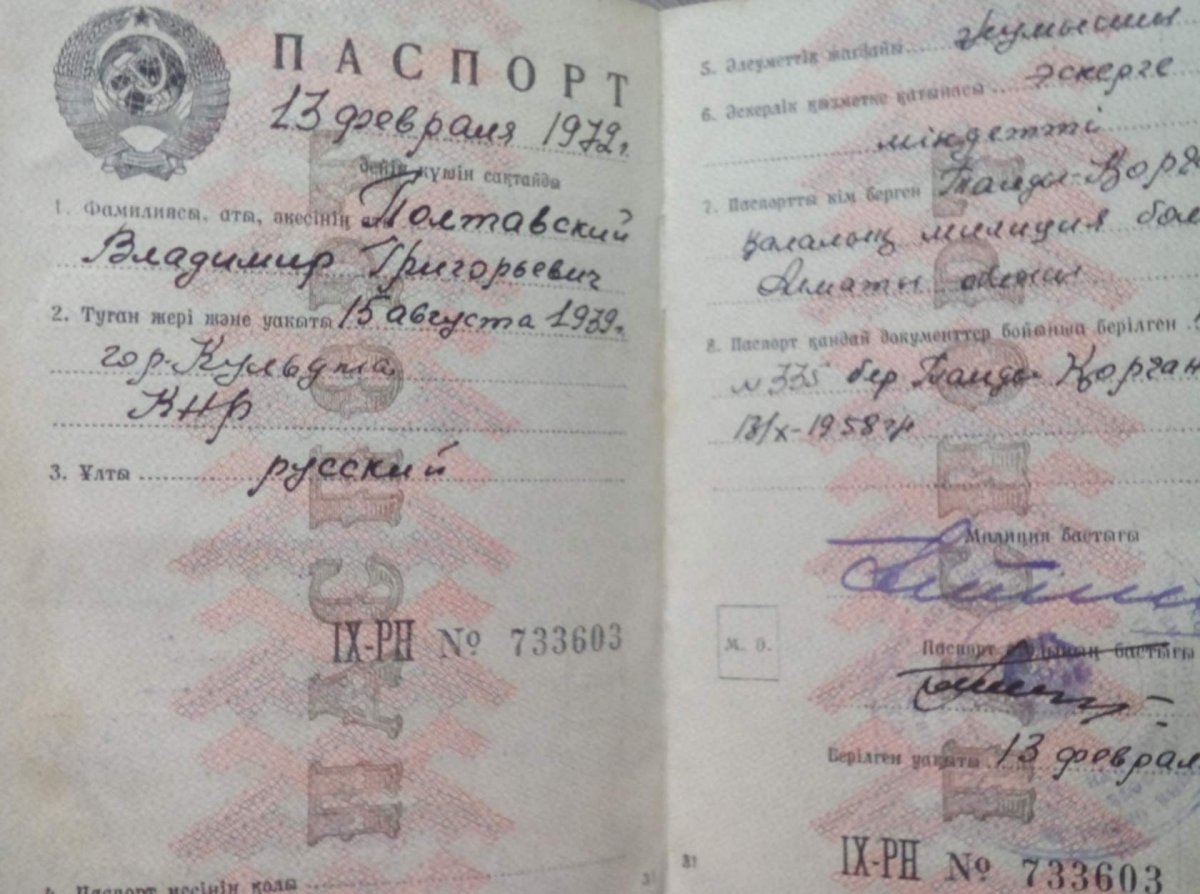 ПАСПОРТ
13 февраля 1972 г.
дейін күшін сақтайды
1. Фамилиясы, аты, әкесінің аты Полтавский
Владимир Григорьевич
2. Туған жері және уақыты 15 августа 1939 г.
гор. Кульджа
КНР
3. Ұлты русский
IX-РН № 733603
4. Паспорт иесінің қолы
5. Әлеуметтік жағдайы жұмысшы
6. Әскерлік қызметке қатынасы әскерге
міндетті
7. Паспортты кім берген Талды-Қорғ
қалалық милиция бөл
Алматы облысы
8. Паспорт қандай документтер бойынша берілген
№ 335 бер Талды-Қорған
13/X-1958 г.
Милиция бастығы
М. О.
Паспорт бастығы
Берілген уақыты 13 феврал
31
IX-РН № 733603
ПАСПОРТ
ПАСПОРТ